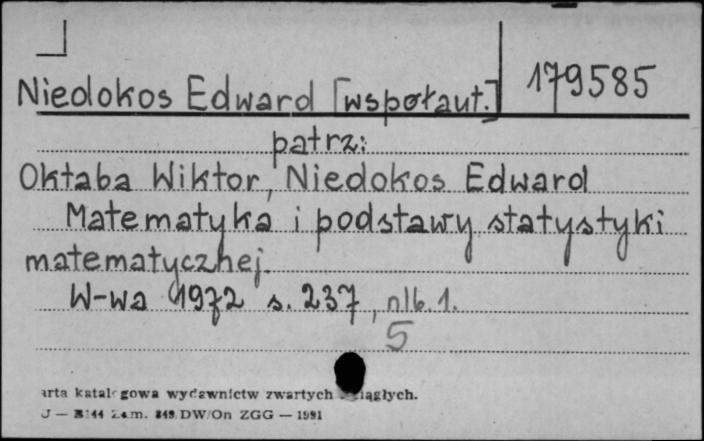 Niedokos Edward [współaut.] 179585
patrz:
Oktaba Wiktor, Niedokos Edward
Matematyka i podstawy statystyki
matematycznej.
W-wa 1972 s. 237, nlb. 1.
5
arta katal gowa wydawnictw zwartych ciągłych.
J — 144 Zam. 849. DW/On ZGG — 1981